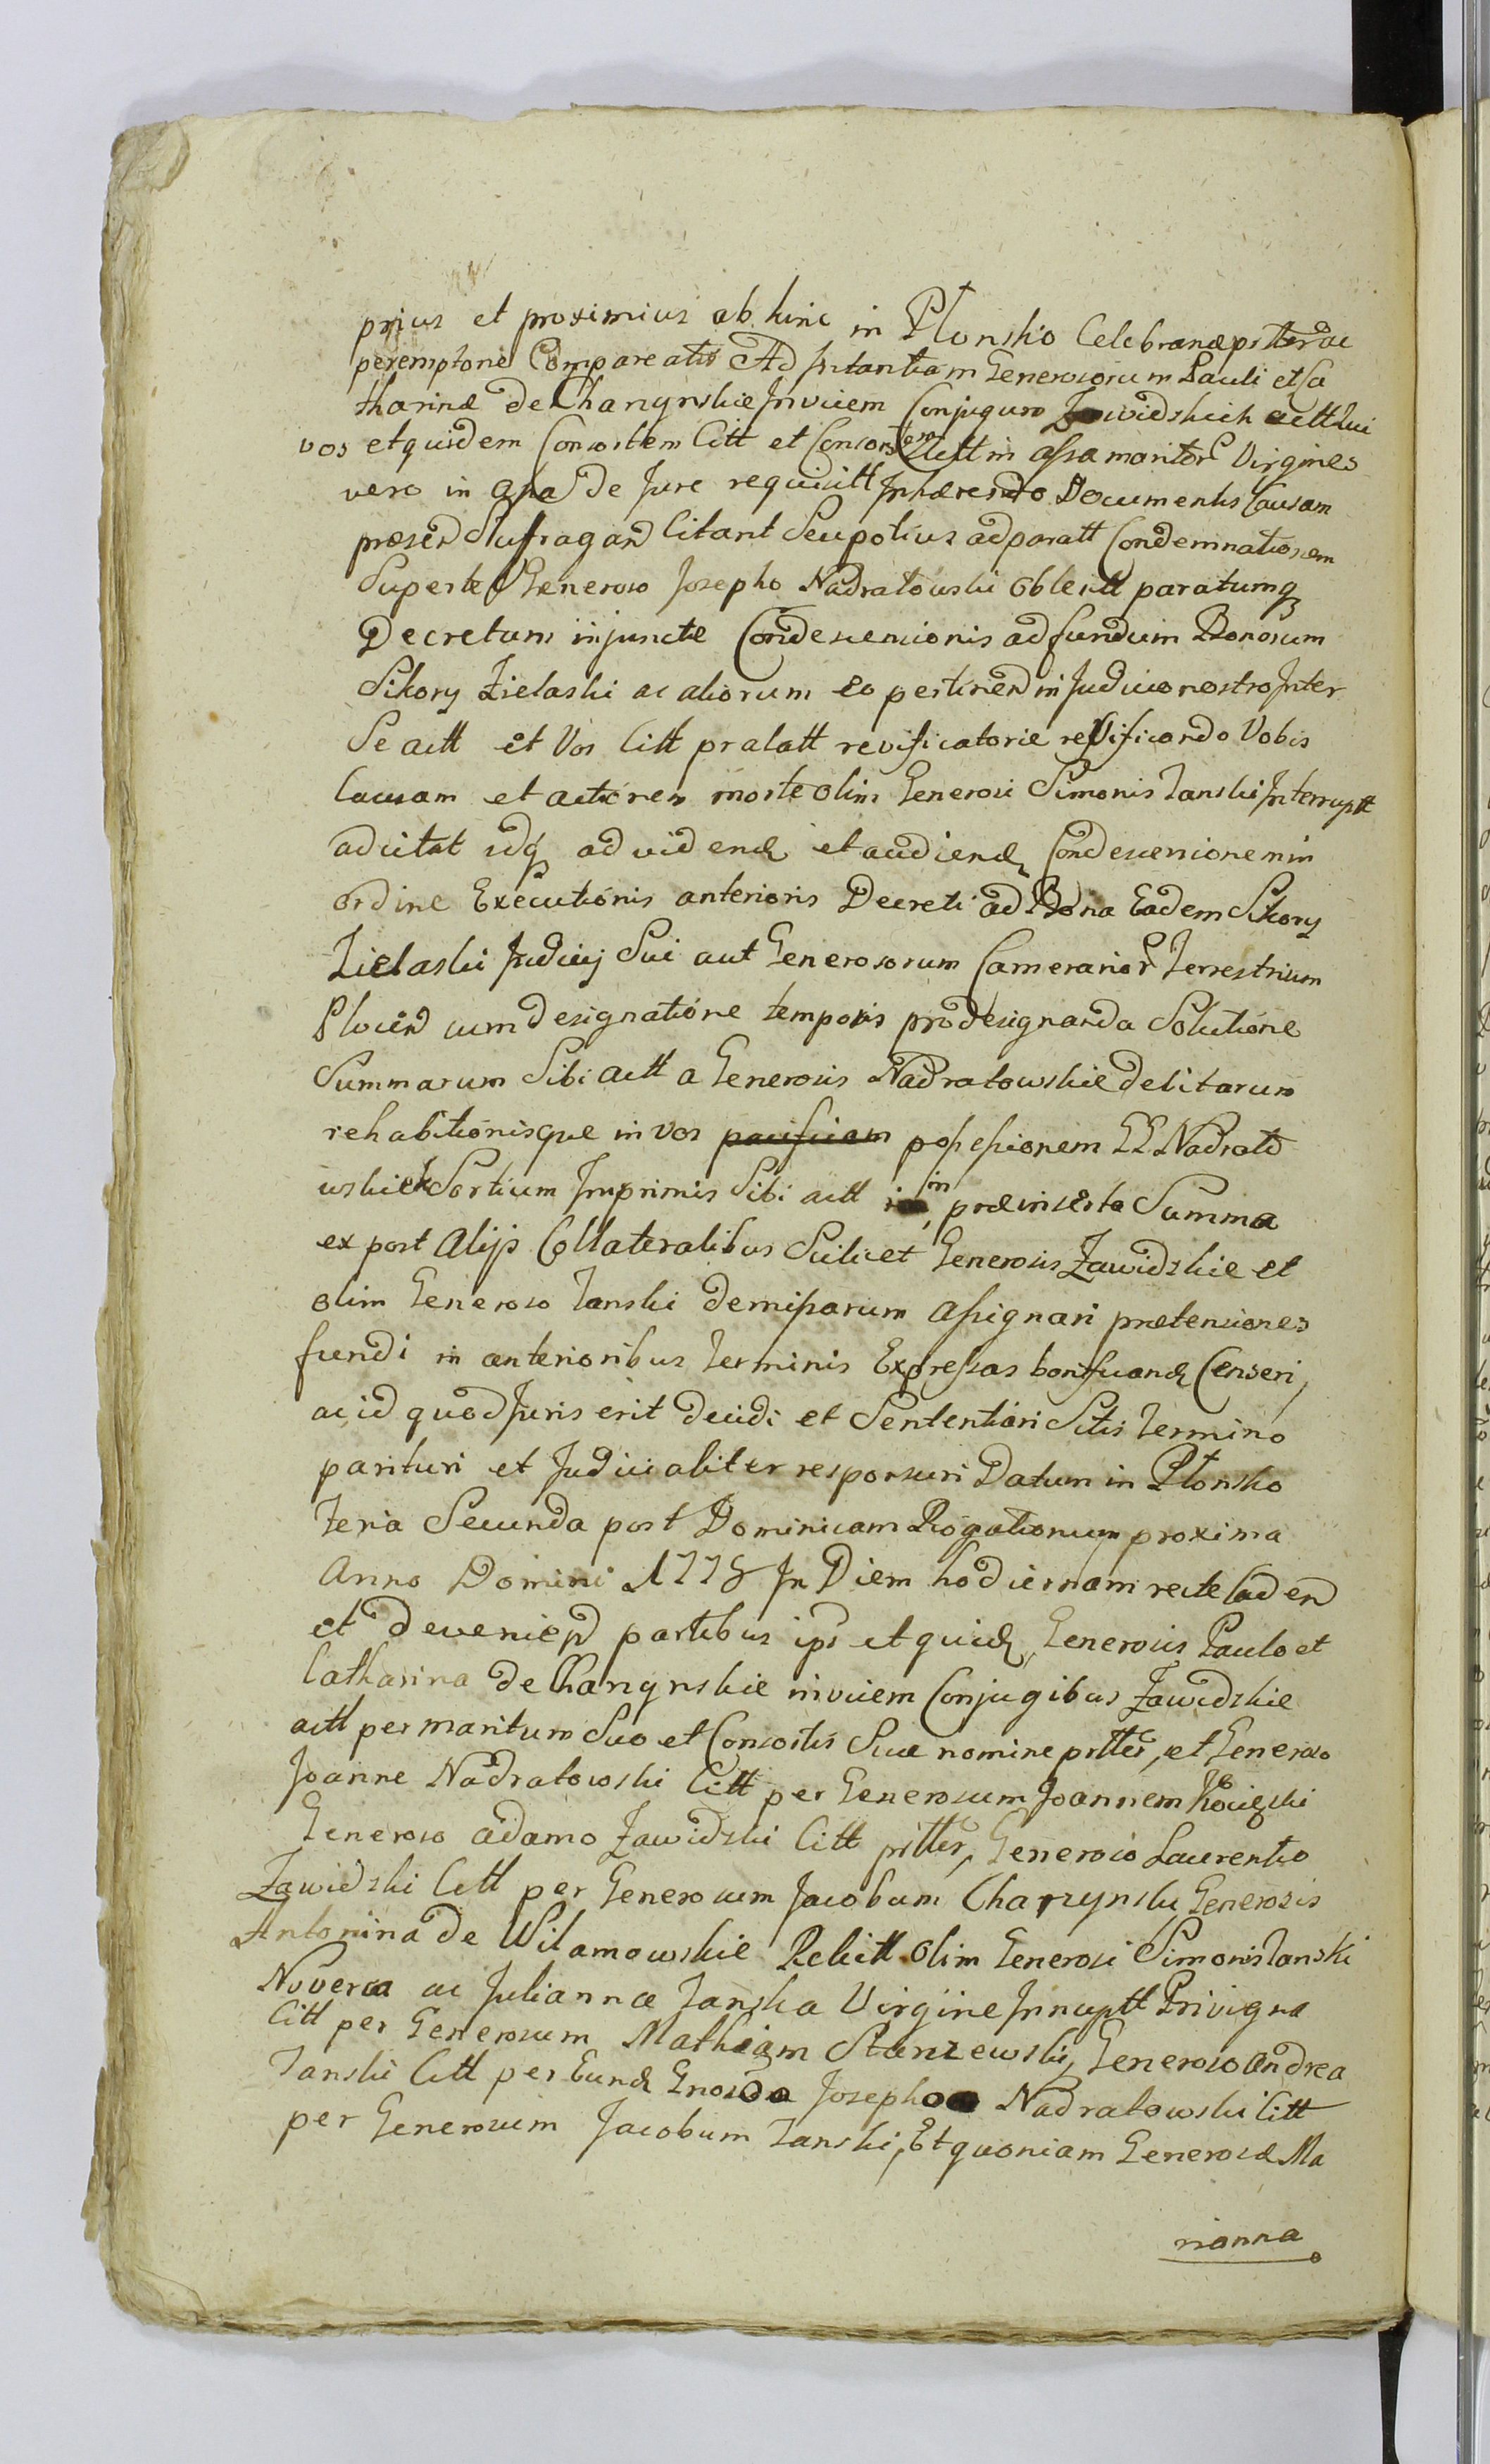 prius et proximius ab hinc in Płonsko Celebrand pttr ac
peremptorie Compareatis Ad Instantiam Generosorum Pauli et Ca
tharinæ de Charzynskie Invicem Conjugum Zawidzkich actt qui
vos et quidem Consortem Citt et Consortem Citt in assa maritor Virgines
vero in assa de Jure requisitt Inhærendo Documentis Causam
præsen Sufragan Citant Seu potius ad paratt Condemnationem
Super te Generoso Josepho Nadratowski obtentt paratumq
Decretum injunctæ Condescensionis ad fundum Bonorum
Sikory Zielaski ac aliorum eo pertinen in Judicio nostro Inter
Se actt et Vos Citt pralatt revificatorie revificando Vobis
Causam et actionem morte olim Generosi Simonis Tanski Interruptt
adcitat idq ad vidend et audiend Condescensionem in
ordine Executionis anterioris Decreti ad Bona Eadem Sikory
Zielaski Judicij Sui aut Generosorum Camerarior Terrestrium
Plocen cum designatione temporis pro designanda Solutione
Summarum Sibi actt a Generosis Nadratowskie debitarum
rehabitionisque in vos possessionem GG Nadrato
wskich Sortium Imprimis Sibi actt in præinserta Summa
ex post Alijs Collateralibus Scilicet Generosis Zawidzkie et
olim Generoso Tanski demissarum assignari prætensiones
fundi in anterioribus Terminis Expressas bonificand Censeri,
ac id quod Juris erit decidi et Sententiari Sitis Termino
parituri et Judicialiter responsuri Datum in Płonsko
Feria Secunda post Dominicam Rogationum proxima
Anno Domini 1778 In Diem hodiernam recte Caden
et devenien partibus ips et quid, Generosis Paulo et
Catharina de Charzynskie invicem Conjugibus Zawidzkie
actt per maritum Suo et Consortis Suæ nomine pttr, et Generoso
Joanne Nadratowski Citt per Generosum Joannem Kocięcki
Generoso Adamo Zawidzki Citt pttr, Generoso Laurentio
Zawidzki Citt per Generosum Jacobum Charzynski Generosis
Antonina de Wilamowskie Relictt olim Generosi Simonis Tanski
Noverca ac Julianna Tanska Virgine Innuptt Privigna
Citt per Generosum Mathiam Staniewski, Generoso Andrea
Tanski Citt per Eund Gnoso Josepho Nadratowski Citt
per Generosum Jacobum Tanski, Et quoniam Generosæ Ma
rianna